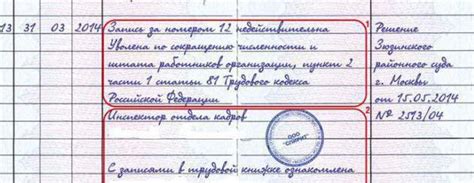 13 31 03 2014 Запись за номером 12 недействительна 1 Решение
Уволена по сокращению численности и Зюзинского
штата работников организации, пункт 2 районного суда
части 1 статьи 81 Трудового кодекса г. Москвы
Российской Федерации от 15.05.2014
Инспектор отдела кадров 2 № 2513/04
ООО
С записями в трудовой книжке ознакомлена